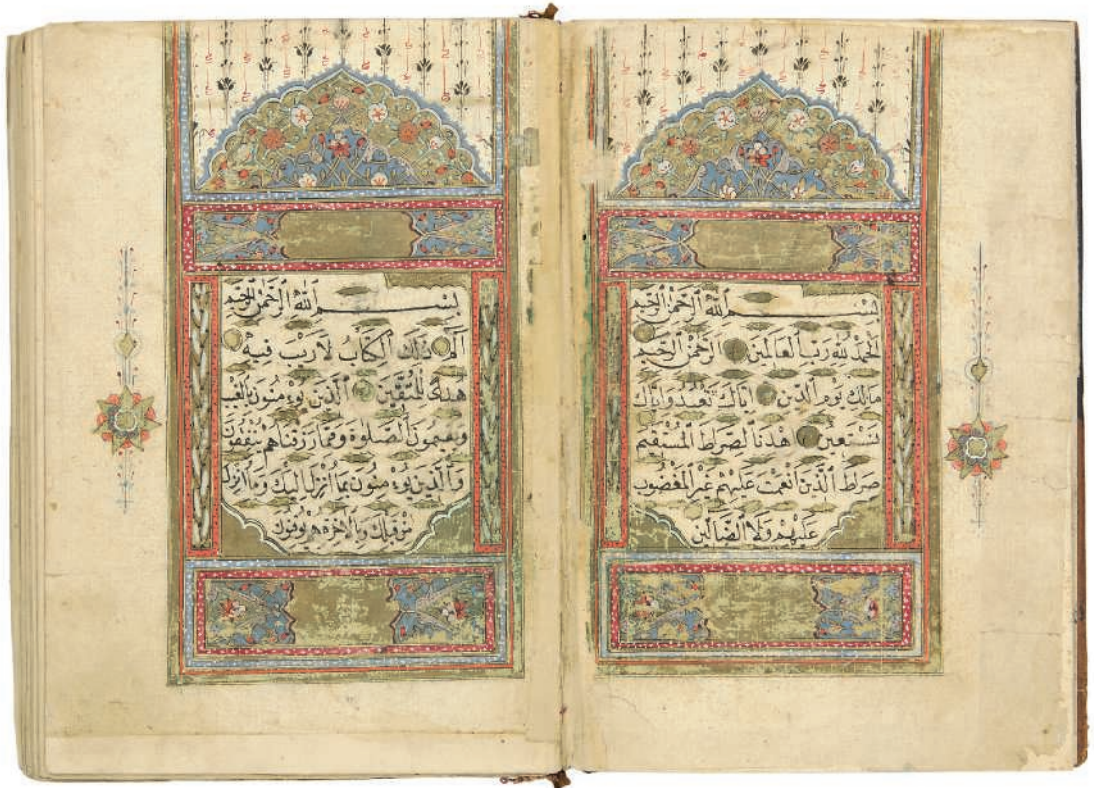 بِسْمِ اللّٰهِ الرَّحْمٰنِ الرَّحِيمِ
اَلْحَمْدُ لِلّٰهِ رَبِّ الْعَالَمِينَ الرَّحْمٰنِ الرَّحِيمِ
مَالِكِ يَوْمِ الدِّينِ اِيَّاكَ نَعْبُدُ وَاِيَّاكَ
نَسْتَعِينُ اِهْدِنَا الصِّرَاطَ الْمُسْتَقِيمَ
صِرَاطَ الَّذِينَ اَنْعَمْتَ عَلَيْهِمْ غَيْرِ الْمَغْضُوبِ
عَلَيْهِمْ وَلَا الضَّالِّينَ
بِسْمِ اللّٰهِ الرَّحْمٰنِ الرَّحِيمِ
الٓمٓ ذٰلِكَ الْكِتَابُ لَا رَيْبَ فِيهِ
هُدًى لِلْمُتَّقِينَ الَّذِينَ يُؤْمِنُونَ بِالْغَيْبِ
وَيُقِيمُونَ الصَّلٰوةَ وَمِمَّا رَزَقْنَاهُمْ يُنْفِقُونَ
وَالَّذِينَ يُؤْمِنُونَ بِمَا اُنْزِلَ اِلَيْكَ وَمَا اُنْزِلَ
مِنْ قَبْلِكَ وَبِالْاٰخِرَةِ هُمْ يُوقِنُونَ